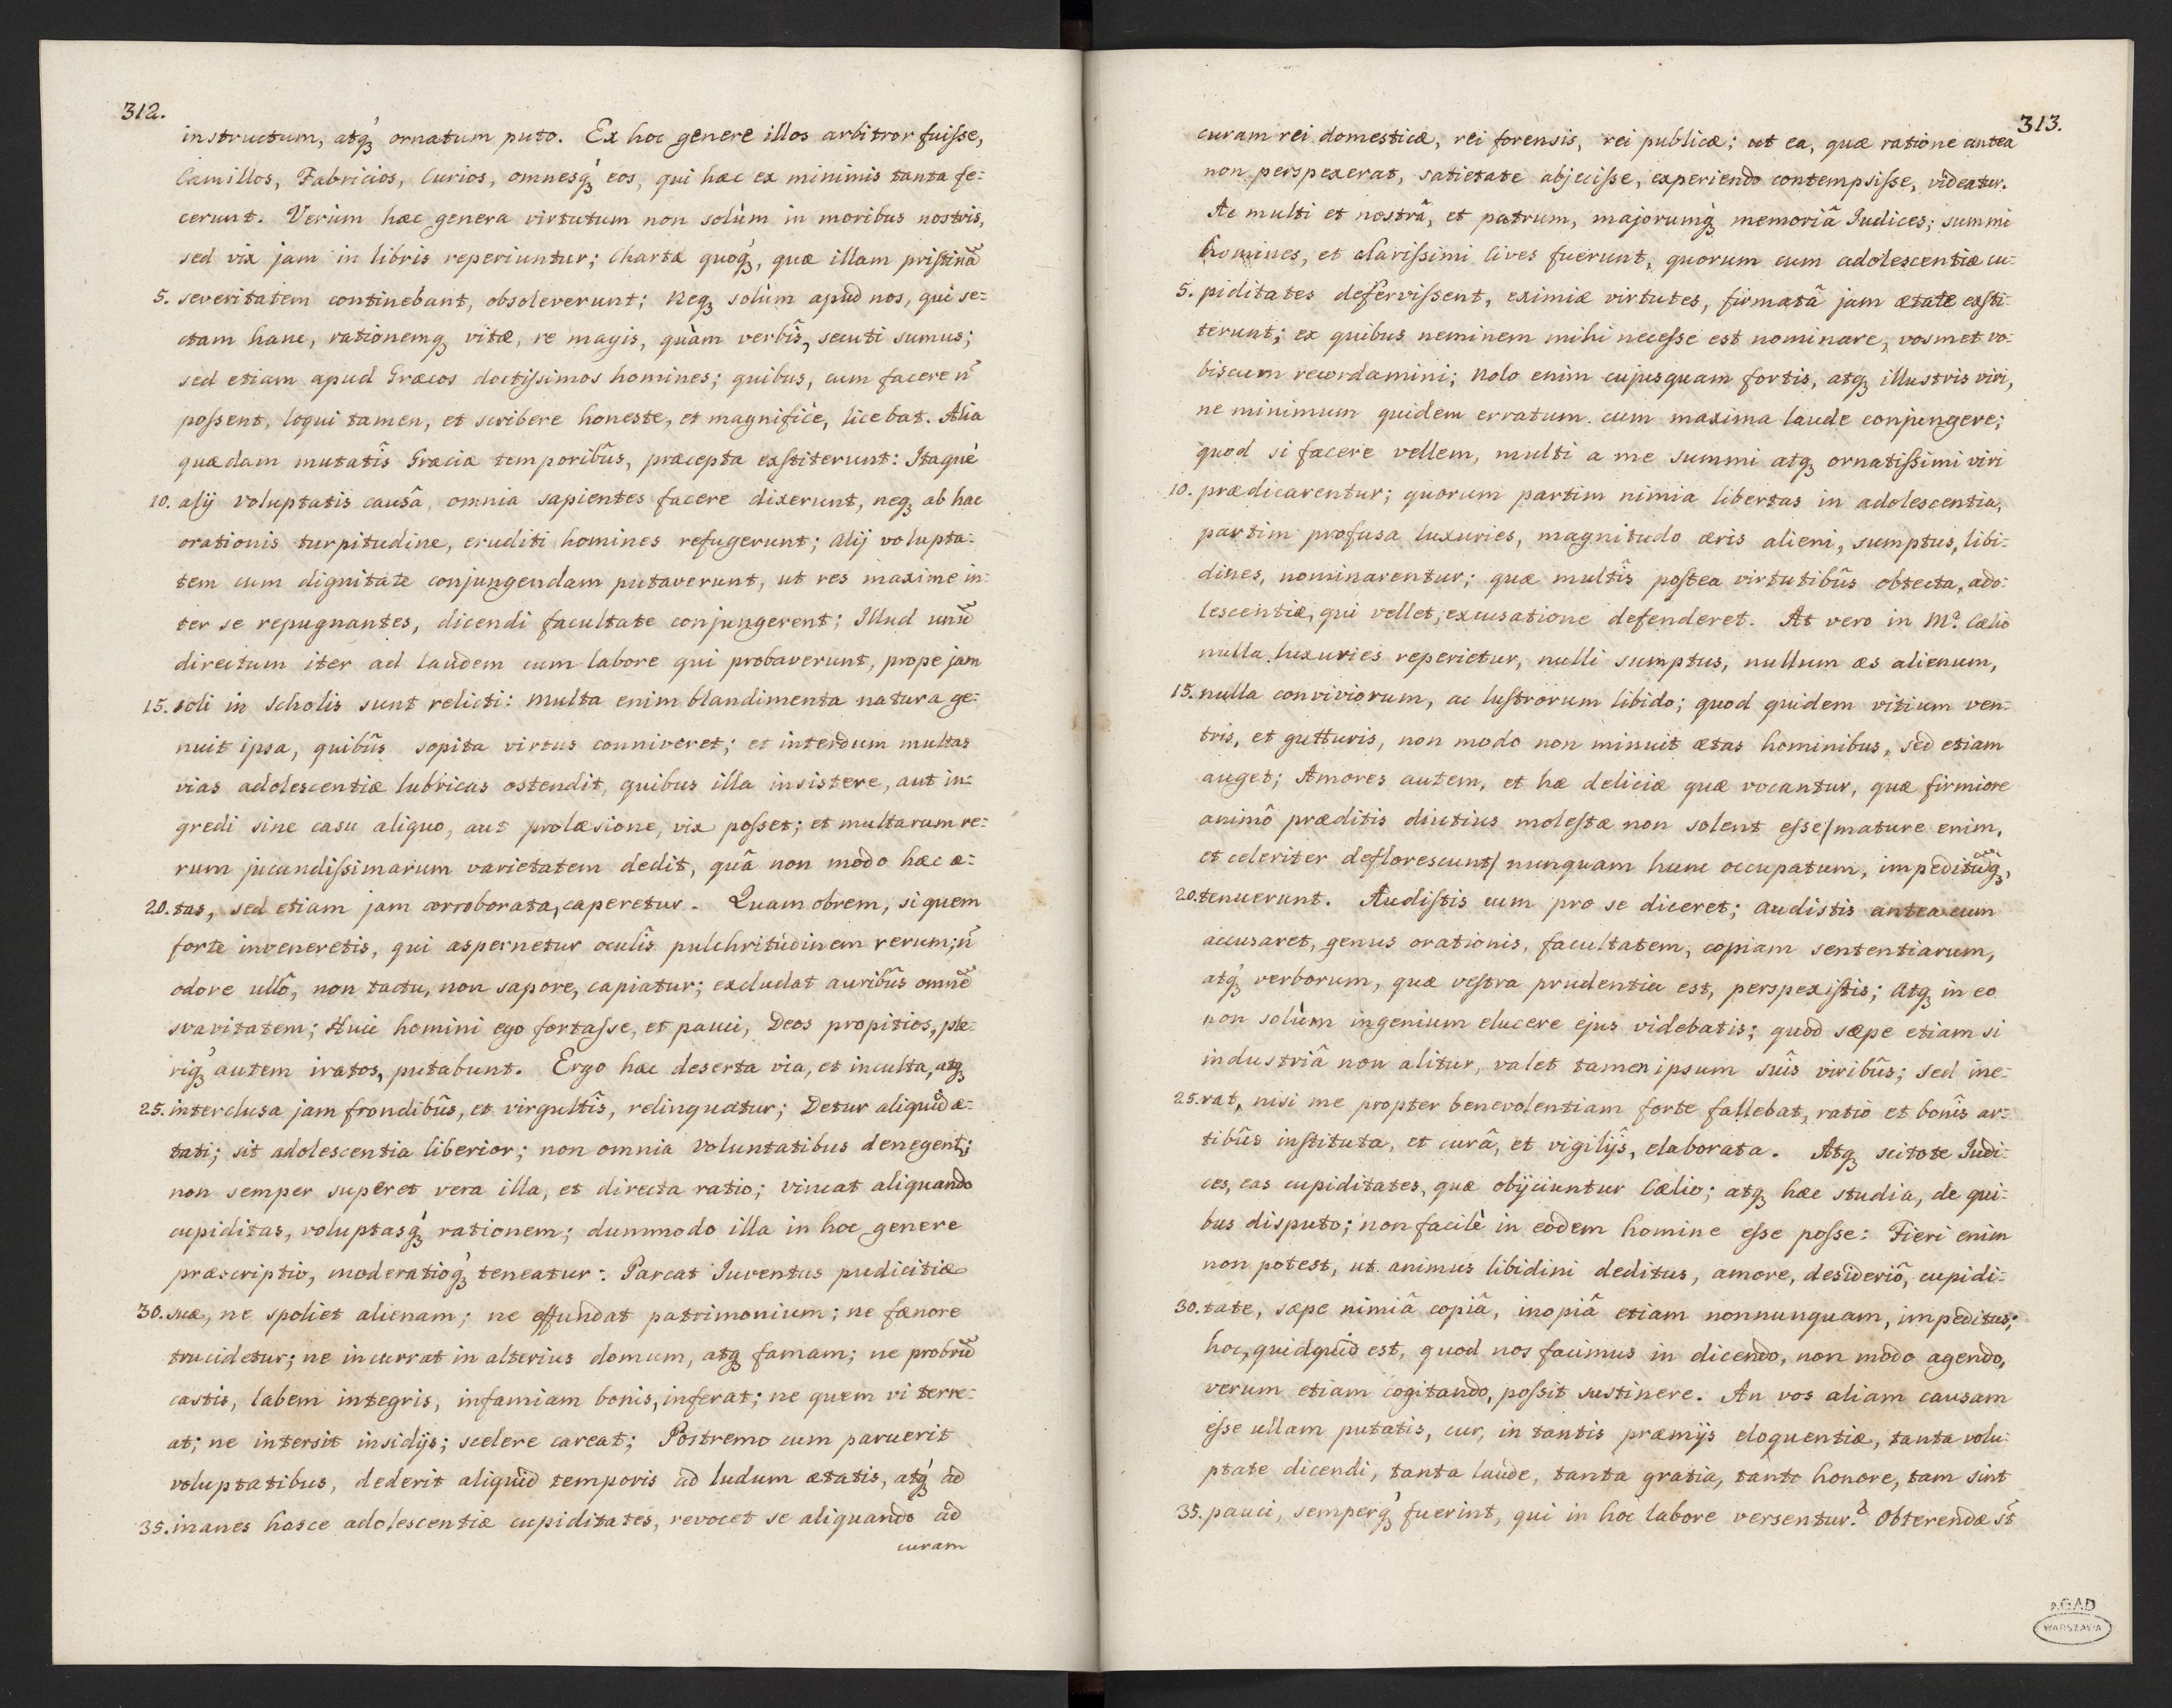 312.
instructum, atq́ʒ ornatum puto. Ex hoc genere illos arbitror fuiſse,
Camillos, Fabricios, Curios, omnesq́ʒ eos, qui hæc ex minimis tanta fe=
cerunt. Verùm hæc genera virtutum non solùm in moribus nostris,
sed vix jam in libris reperiuntur; Chartæ quoq́ʒ, quæ illam priſtinã
5. severitatem continebant, obsoleverunt; Neqʒ solùm apud nos, qui se=
ctam hanc, rationemqʒ vitæ, re magis, quàm verbîs, secuti sumus;
sed etiam apud Græcos doctiſsimos homines; quibus, cum facere ñ
poſsent, loqui tamen, et scribere honeste, et magnificè, licebat. Alia
quædam mutatîs Græciæ temporibûs, præcepta exſtiterunt: Itaque
10. alij voluptatis causâ, omnia sapientes facere dixerunt, neqʒ ab hac
orationis turpitudine, eruditi homines refugerunt; Alij volupta=
tem cum dignitate conjungendam putaverunt, ut res maxime in=
ter se repugnantes, dicendi facultate conjungerent; Illud unũ
directum iter ad laudem cum labore qui probaverunt, prope jam
15. soli in Scholis sunt relicti: Multa enim blandimenta natura ge=
nuit ipsa, quibûs sopita virtus conniveret; et interdum multas
vias adolescentiæ lubricas ostendit, quibus illa insistere, aut in=
gredi sine casu aliquo, aut prolæsione, vix poſset; et multarum re=
rum jucundiſsimarum varietatem dedit, quâ non modo hæc æ=
20. tas, sed etiam jam corroborata, caperetur. Quamobrem, si quem
forte inveneretis, qui aspernetur oculîs pulchritudinem rerum; ñ
odore ullô, non tactu, non sapore, capiatur; excludat auribûs omnẽ
svavitatem; Huic homini ego fortaſse, et pauci, Deos propitios, ple=
riq́ʒ autem iratos, putabunt. Ergo hæc deserta via, et inculta, atqʒ
25. interclusa jam frondibûs, et virgultîs, relinquatur; Detur aliquid æ=
tati; sit adolescentia liberior; non omnia voluntatibus denegent;
non semper superet vera illa, et directa ratio; vincat aliquando
cupiditas, voluptasq́ʒ rationem; dummodo illa in hoc genere
præscriptio, moderatioq́ʒ teneatur: Parcat Iuventus pudicitiæ
30. suæ, ne spoliet alienam; ne effundat patrimonium; ne fænore
trucidetur; ne incurrat in alterius domum, atqʒ famam; ne probrũ
castis, labem integris, infamiam bonis, inferat; ne quem vi terre=
at; ne intersit insidijs; scelere careat; Postremo cum paruerit
voluptatibus, dederit aliquid temporis ad ludum ætatis, atq́ʒ ad
35. inanes hasce adolescentiæ cupiditates, revocet se aliquando ad
curam
313.
curam rei domesticæ, rei forensis, rei publicæ; ut ea, quæ ratione antea
non perspexerat, satietate abjeciſse, experiendo contempsiſse, videatur.
Ac multi et nostrâ, et patrum, majorumq́ʒ memoriâ Iudices; summi
homines, et clariſsimi Cives fuerunt, quorum cum adolescentiæ cu=
5. piditates defervîſsent, eximiæ virtutes, firmatâ jam ætate exſti=
terunt; ex quibus neminem mihi neceſse est nominare, vosmet vo=
biscum recordamini; Nolo enim cujusquam fortis, atqʒ illustris viri,
ne minimum quidem erratum cum maxima laude conjungere;
quod si facere vellem, multi a me summi atqʒ ornatiſsimi viri
10. prædicarentur; quorum partim nimia libertas in adolescentia,
partim profusa luxuries, magnitudo æris alieni, sumptus, libi=
dines, nominarentur; quæ multîs poſtea virtutibûs obtecta, ado=
lescentiæ, qui vellet, excusatione defenderet. At vero in M? Cælio
nulla luxuries reperietur, nulli sumptus, nullum æs alienum,
15. nulla conviviorum, ac luſtrorum libido; quod quidem vitium ven=
tris, et gutturis, non modo non minuit ætas hominibus, sed etiam
auget; Amores autem, et hæ deliciæ quæ vocantur, quæ firmiore
animô præditis diutius moleſtæ non solent eſse/ mature enim,
et celeriter deflorescunt/ nunquam hunc occupatum, impeditũqʒ,
20. tenuerunt. Audiſtis cum pro se diceret; audistis antea cum
accusaret, genus orationis, facultatem, copiam sententiarum,
atq́ʒ verborum, quæ veſtra prudentia est, perspexiſtis; Atqʒ in eo
non solùm ingenium elucere ejus videbatis; quod sæpe etiam si
industriâ non alitur, valet tamen ipsum suîs viribûs; sed ine=
25. rat, nisi me propter benevolentiam forte fallebat, ratio et bonîs ar=
tibûs inſtituta, et curâ, et vigilijs, elaborata. Atqʒ scitote Iudi=
ces, eas cupiditates, quæ obijciuntur Cælio; atqʒ hæc studia, de qui=
bus disputo; non facilè in eodem homine eſse poſse: Fieri enim
non potest, ut animus libidini deditus, amore, desideriô, cupidi=
30. tate, sæpe nimiâ copiâ, inopiâ etiam nonnunquam, impeditus;
hoc, quidquid est, quod nos facimus in dicendo, non modo agendo,
verum etiam cogitando, poſsit sustinere. An vos aliam causam
eſse ullam putatis, cur, in tantis præmijs eloquentiæ, tanta volu=
ptate dicendi, tanta laude, tanta gratia, tanto honore, tam sint
35. pauci, semperq́ʒ fuerint, qui in hoc labore versentur.? Obterendæ st̃
AGAD
WARSZAWA